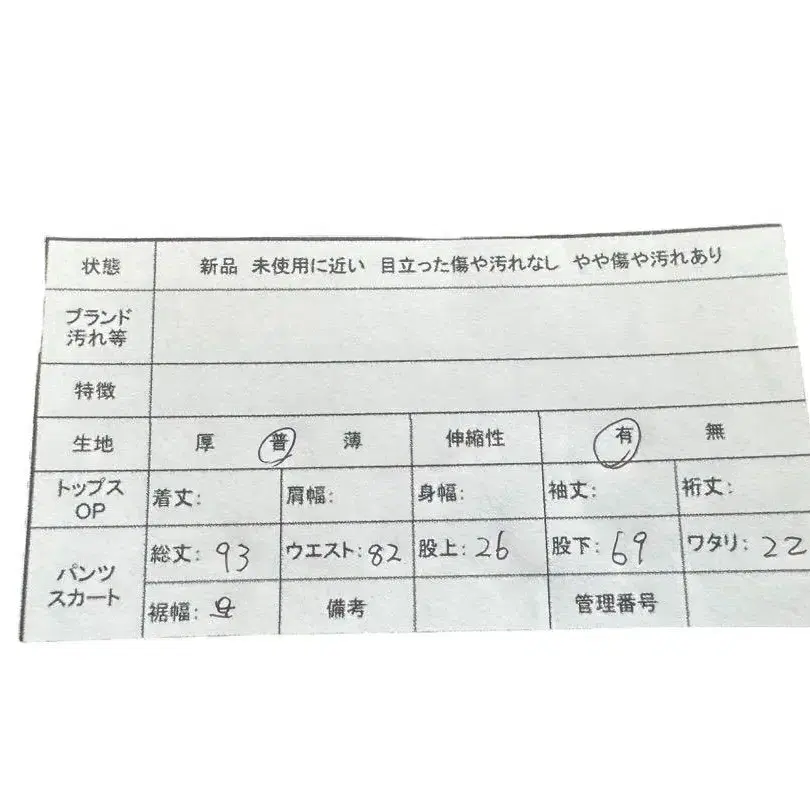 状態 新品 未使用に近い 目立った傷や汚れなし やや傷や汚れあり
ブランド
汚れ等
特徴
生地 厚 普 薄 伸縮性 有 無
トップス
OP
着丈: 肩幅: 身幅: 袖丈: 裄丈:
パンツ
スカート
総丈: 93 ウエスト: 82 股上: 26 股下: 69 ワタリ: 22
裾幅: 備考 管理番号